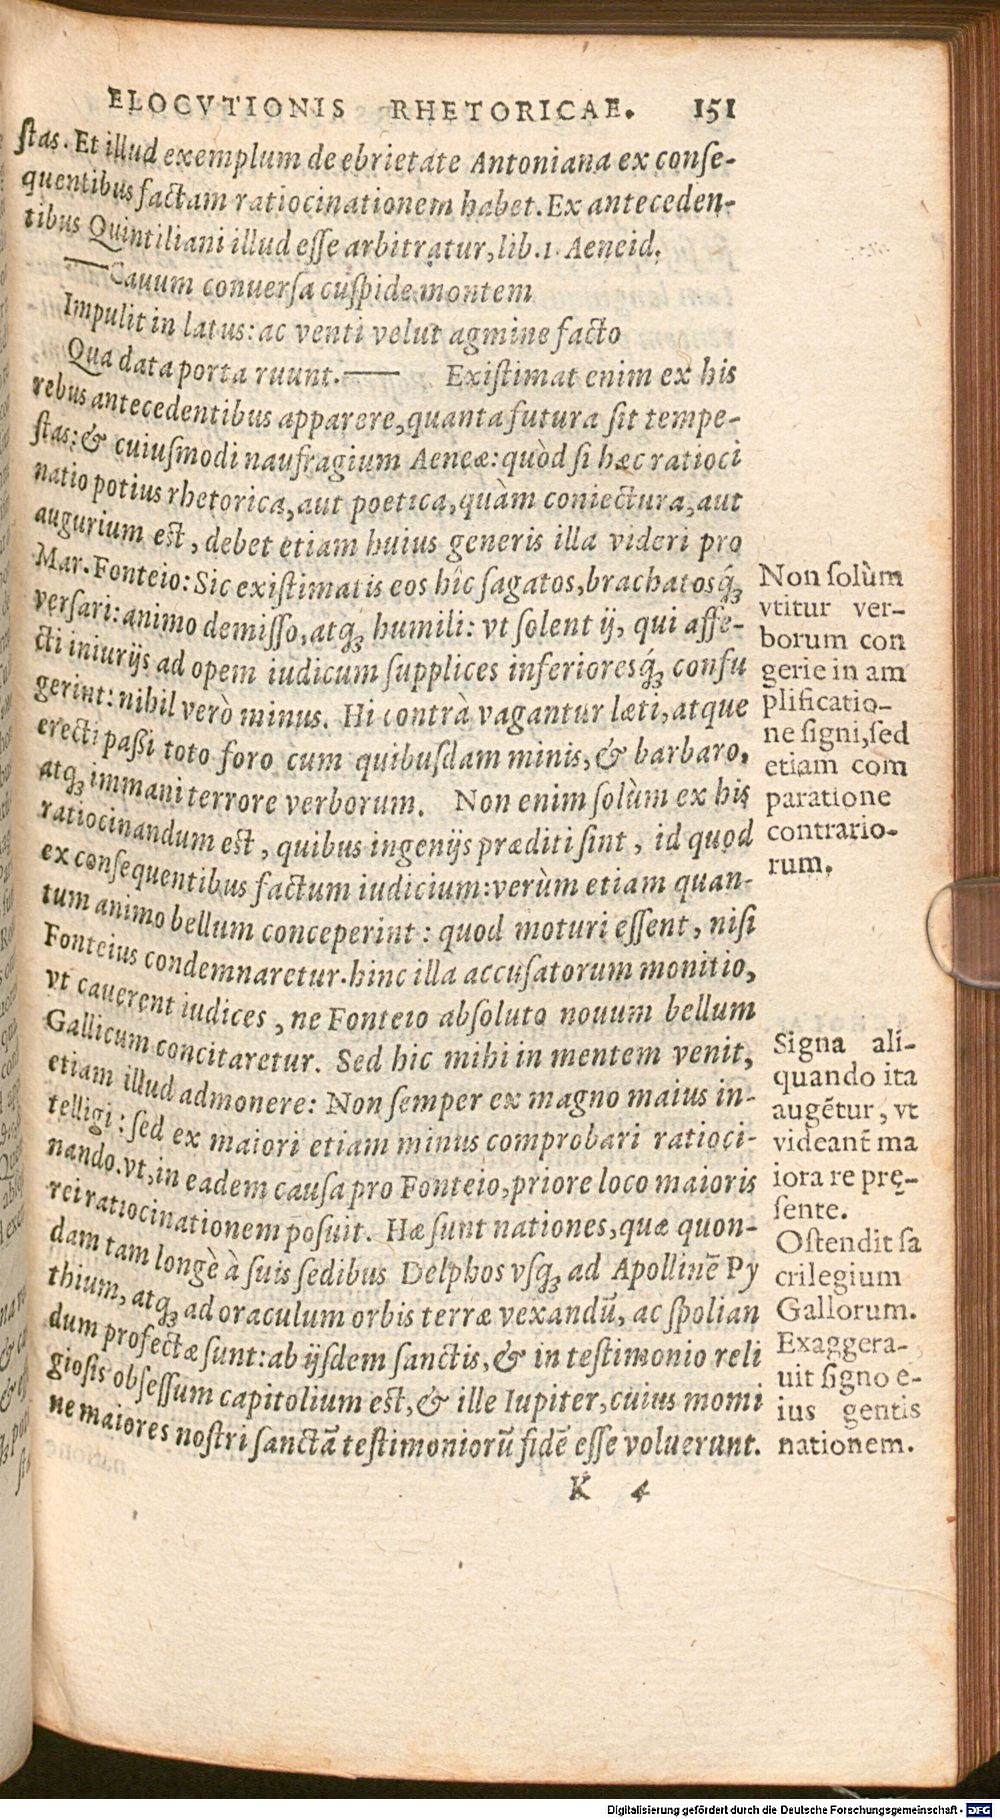 ELOCVTIONIS RHETORICAE. 151
ſtas. Et illud exemplum de ebrietate Antoniana ex conſe-
quentibus factam ratiocinationem habet. Ex anteceden-
tibus Quintiliani illud eſſe arbitratur, lib. 1. Aeneid.
—Cauum conuerſa cuſpide montem
Impulit in latus: ac venti velut agmine facto
Qua data porta ruunt.— Exiſtimat enim ex his
rebus antecedentibus apparere, quanta futura ſit tempe-
ſtas: & cuiuſmodi naufragium Aeneæ: quòd ſi hæc ratioci
natio potius rhetorica, aut poetica, quàm coniectura, aut
augurium eſt, debet etiam huius generis illa videri pro
Mar. Fonteio: Sic exiſtimatis eos hîc ſagatos, brachatosq́ꝫ
verſari: animo demiſſo, atqꝫ humili: vt ſolent ij, qui affe-
cti iniurijs ad opem iudicum ſupplices inferioresq́ꝫ confu
gerint: nihil verò minus. Hi contrà vagantur læti, atque
erecti paßi toto foro cum quibuſdam minis, & barbaro,
atqꝫ immani terrore verborum. Non enim ſolùm ex his
ratiocinandum eſt, quibus ingenijs præditi ſint, id quod
ex conſequentibus factum iudicium: verùm etiam quan-
tum animo bellum conceperint: quod moturi eſſent, niſi
Fonteius condemnaretur. hinc illa accuſatorum monitio,
vt cauerent iudices, ne Fonteio abſoluto nouum bellum
Gallicum concitaretur. Sed hic mihi in mentem venit,
etiam illud admonere: Non ſemper ex magno maius in-
telligi: ſed ex maiori etiam minus comprobari ratioci-
nando. vt, in eadem cauſa pro Fonteio, priore loco maioris
rei ratiocinationem poſuit. Hæ ſunt nationes, quæ quon-
dam tam longè à ſuis ſedibus Delphos vſqꝫ ad Apollinē Py
thium, atqꝫ ad oraculum orbis terræ vexandū, ac ſpolian
dum profectæ ſunt: ab ijſdem ſanctis, & in teſtimonio reli
gioſis obſeſſum capitolium eſt, & ille Iupiter, cuius nomi
ne maiores noſtri ſanctā teſtimoniorū fidē eſſe voluerunt.
K 4
Non ſolùm
vtitur ver-
borum con
gerie in am
plificatio-
ne ſigni, ſed
etiam com
paratione
contrario-
rum.
Signa ali-
quando ita
augētur, vt
videant̄ ma
iora re prę-
ſente.
Oſtendit ſa
crilegium
Gallorum.
Exaggera-
uit ſigno e-
ius gentis
nationem.
Digitalisierung gefördert durch die Deutsche Forschungsgemeinschaft - DFG